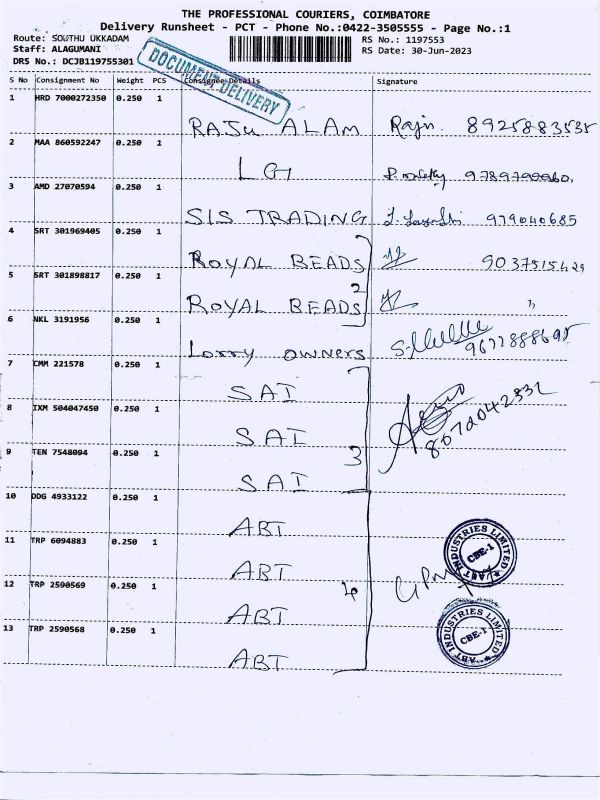 THE PROFESSIONAL COURIERS, COIMBATORE
Delivery Runsheet - PCT - Phone No.:0422-3505555 - Page No.:1
Route: SOUTHU UKKADAM RS No.: 1197553
Staff: ALAGUMANI RS Date: 30-Jun-2023
DRS No.: DCJB119755301
DOCUMENT DELIVERY
S No Consignment No Weight PCS Consignee Details Signature
1 HRD 7000272350 0.250 1 RAJU ALAM Raju 8925883535
2 MAA 860592247 0.250 1 LGI
3 AMD 27070594 0.250 1 SIS TRADING 979040685
4 SRT 301969405 0.250 1 ROYAL BEADS 9037515429
5 SRT 301898817 0.250 1 ROYAL BEADS 2 "
6 NKL 3191956 0.250 1 Lorry owners
7 CMM 221578 0.250 1 SAI
8 IXM 504047450 0.250 1 SAI 8072042332
9 TEN 7548094 0.250 1 SAI 3
10 DDG 4933122 0.250 1 ABT
11 TRP 6094883 0.250 1 ABT
ABT INDUSTRIES LIMITED CBE-1
12 TRP 2590569 0.250 1 ABT 4
13 TRP 2590568 0.250 1 ABT
ABT INDUSTRIES LIMITED CBE-1